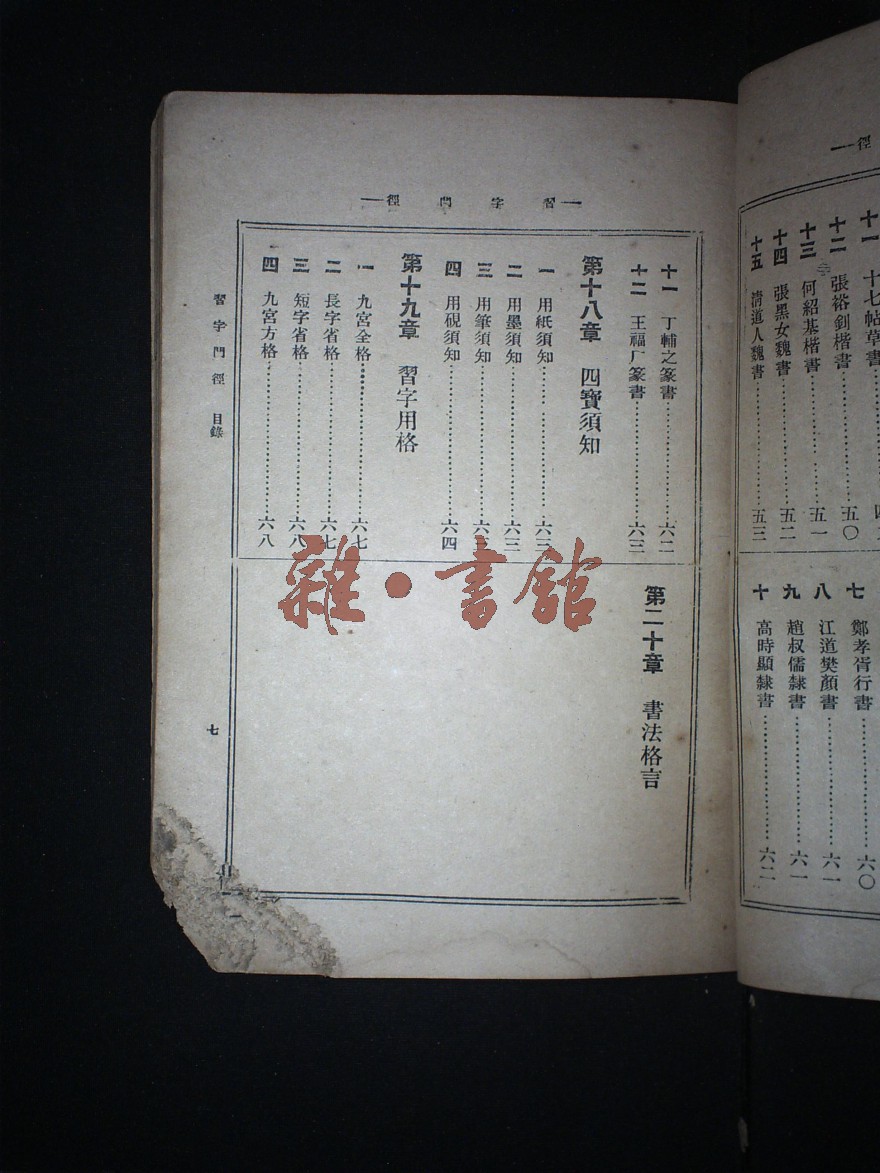 徑
十一 十七帖草書
十二 張裕釗楷書……五〇
十三 何紹基楷書……五一
十四 張黑女魏書……五二
十五 清道人魏書……五三
七 鄭孝胥行書……六〇
八 江道樊顏書……六一
九 趙叔儒隸書……六一
十 高時顯隸書……六二
習字門徑
十一 丁輔之篆書……六二
十二 王福厂篆書……六三
第十八章 四寶須知
一 用紙須知……六三
二 用墨須知……六三
三 用筆須知……六
四 用硯須知……六四
第十九章 習字用格
一 九宮全格……六七
二 長字省格……六七
三 短字省格……六八
四 九宮方格……六八
第二十章 書法格言
習字門徑 目錄
七
雜·書館